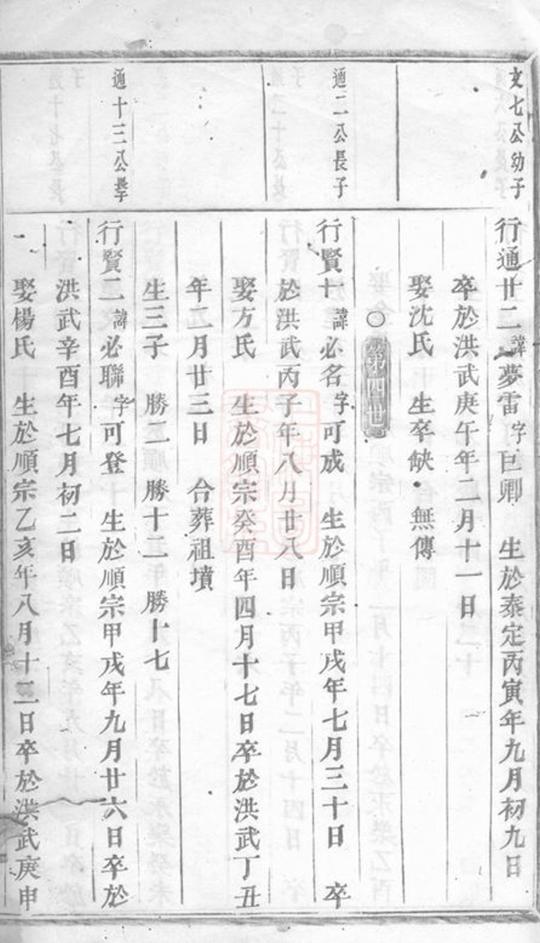 文七公幼子
行通廿二諱夢雷字巨卿　生於泰定丙寅年九月初九日
卒於洪武庚午年二月十一日
娶沈氏　生卒缺　無傳
○第四世
通二公長子
行賢十諱必名字可成　生於順宗甲戌年七月三十日　卒
於洪武丙子年八月廿八日
娶方氏　生於順宗癸酉年四月十七日卒於洪武丁丑
年二月廿三日　合葬祖墳
生三子　勝二勝十二勝十七
通十三公長子
行賢二諱必聯字可登　生於順宗甲戌年九月廿六日卒於
洪武辛酉年七月初二日
娶楊氏　生於順宗乙亥年八月十二日卒於洪武庚申